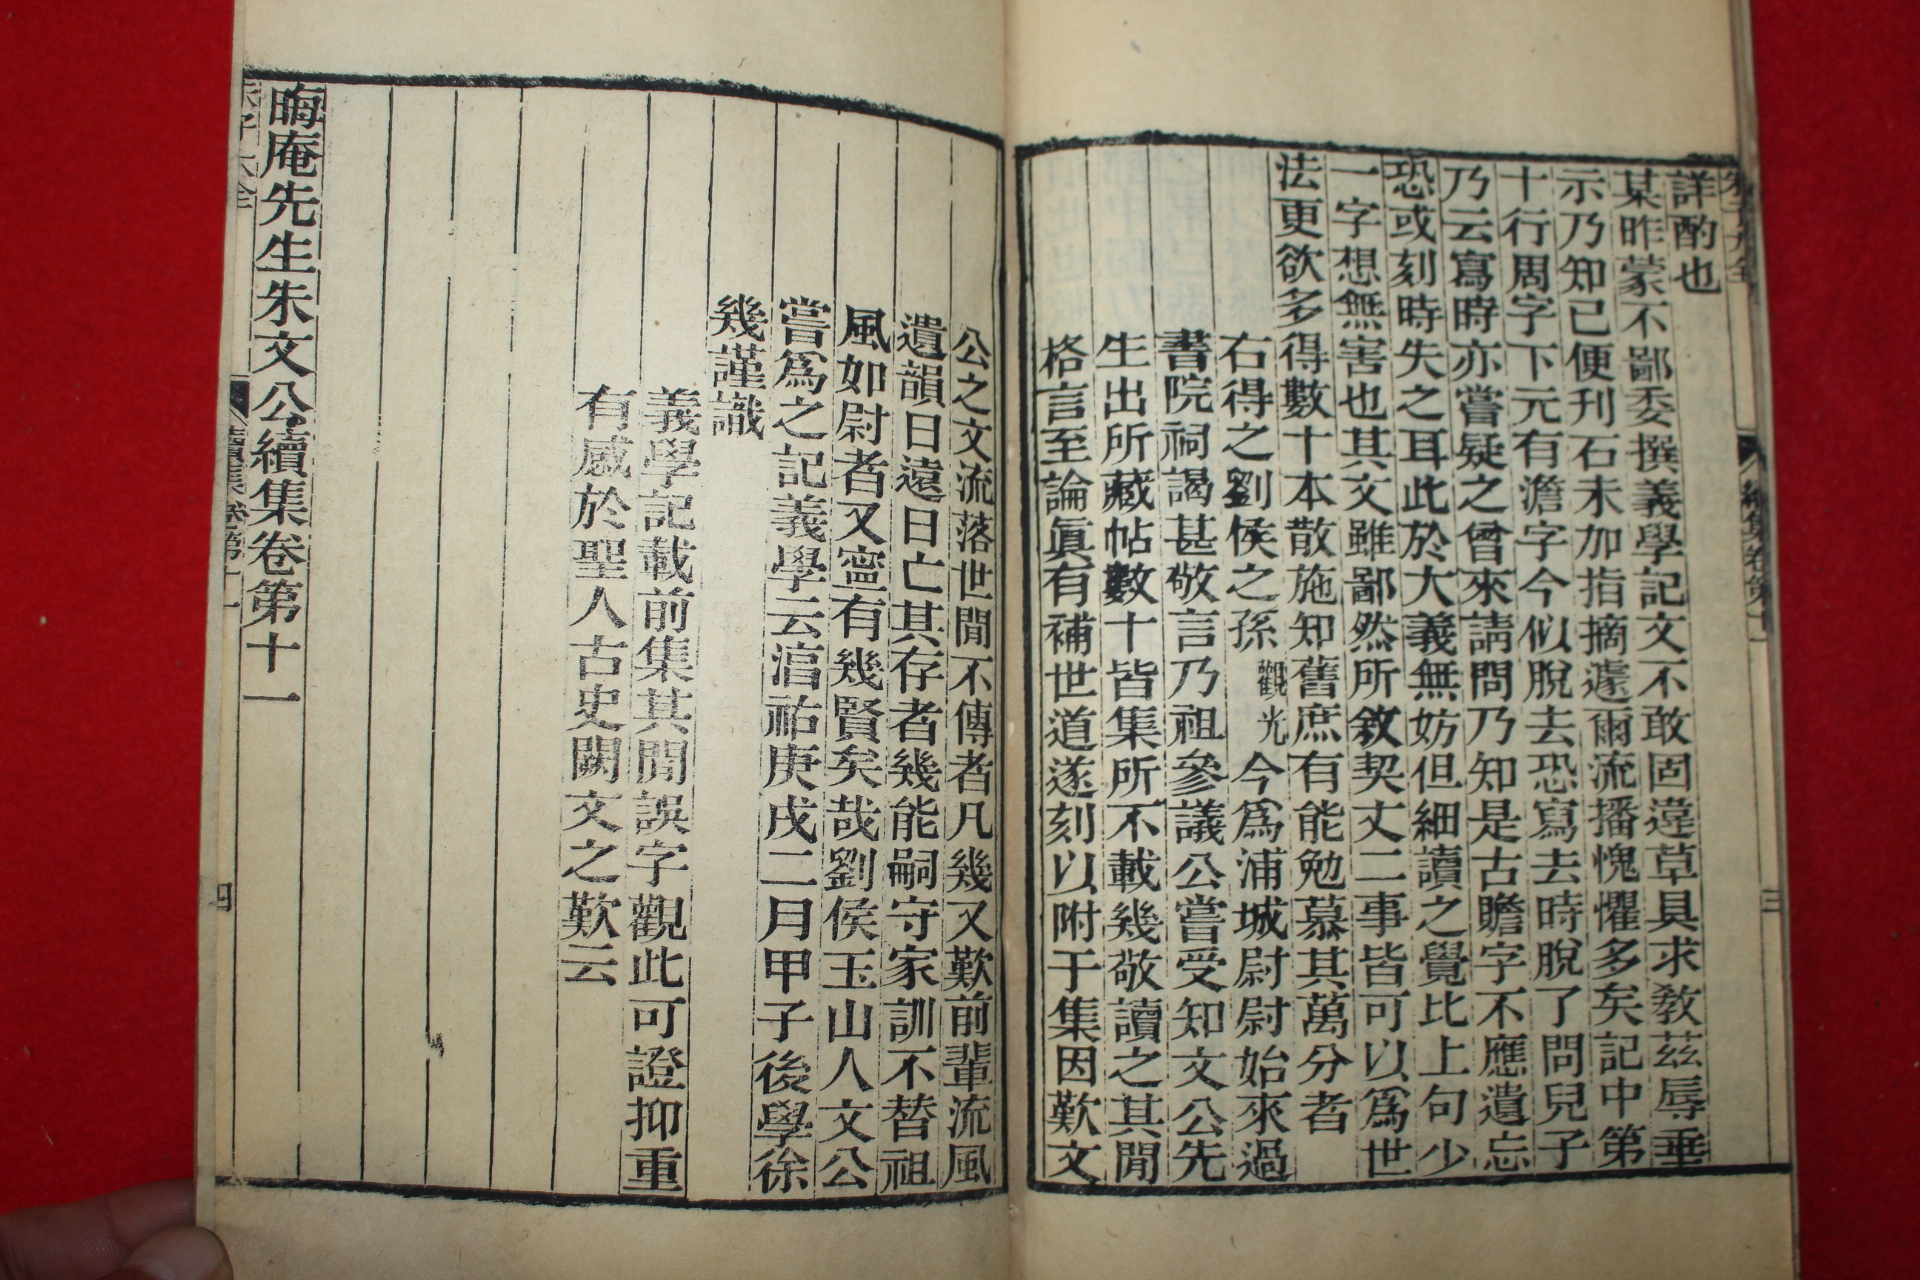 詳酌也
某昨蒙不鄙委撰義學記文不敢固違草具求教茲辱垂
示乃知已便刊石未加指摘遽爾流播愧懼多矣記中第
十行周字下元有澹字今似脫去恐寫去時脫了問兒子
乃云寫時亦嘗疑之曾來請問乃知是古贍字不應遺忘
恐或刻時失之耳此於大義無妨但細讀之覺比上句少
一字想無害也其文雖鄙然所敘契丈二事皆可以爲世
法更欲多得數十本散施知舊庶有能勉慕其萬分者
右得之劉侯之孫觀光今爲浦城尉尉始來過
書院祠謁甚敬言乃祖參議公嘗受知文公先
生出所藏帖數十皆集所不載幾敬讀之其閒
格言至論眞有補世道遂刻以附于集因歎文
公之文流落世間不傳者凡幾又歎前輩流風
遺韻日遠日亡其存者幾能嗣守家訓不替祖
風如尉者又寧有幾賢矣哉劉侯玉山人文公
嘗爲之記義學云淳祐庚戌二月甲子後學徐
幾謹識
義學記載前集其閒誤字觀此可證抑重
有感於聖人古史闕文之歎云
晦庵先生朱文公續集卷第十一
續集卷第十一
四
續集卷第十一
三